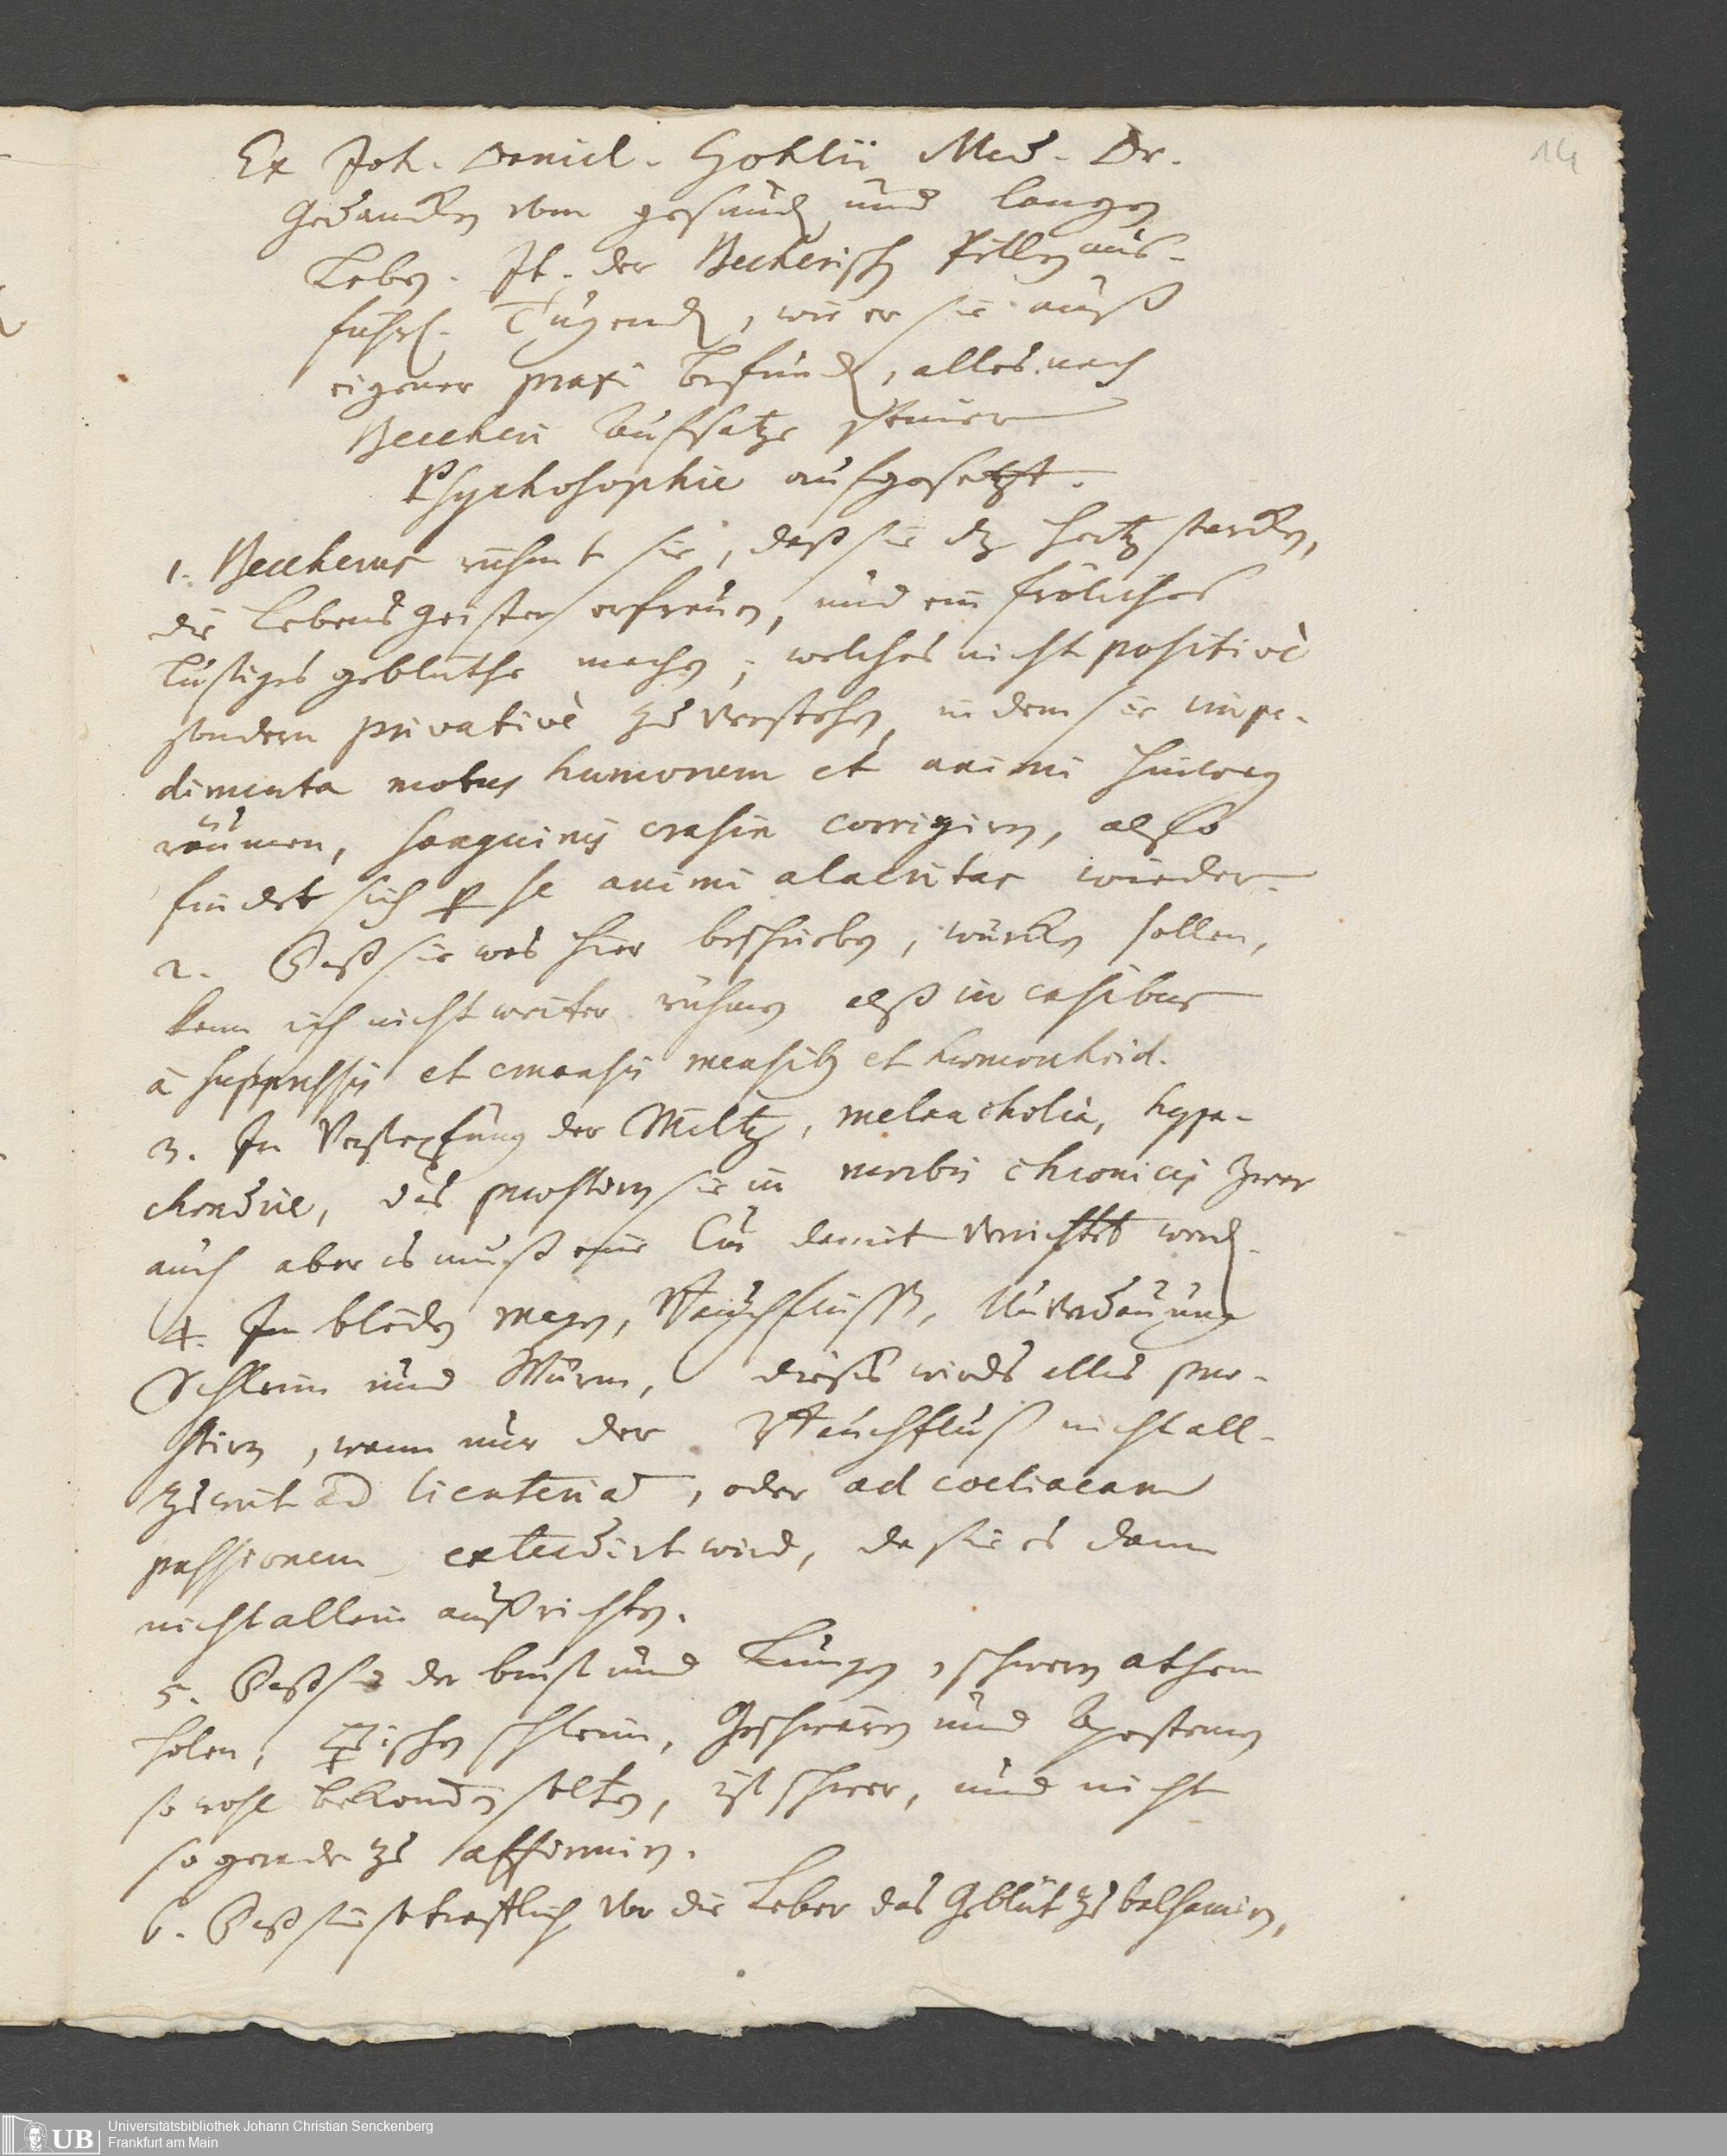 14
Ex Joh. Daniel. Gohlii Med. Dr.
Gedancken vom gesunden und langen
Leben. It. der Becherischen Pillen aus-
führl. Tugenden, wie er sie auß
eigener praxi befunden, alles nach
Beccheri Aufsatze seiner
Psychosophie aufgesetzt.
1. Beccherus rühmt sie, daß sie dz Hertz stärcken,
die Lebensgeister erfreuen, und ein fröliches
lustiges geblüthe machen; welches nicht positivè
sondern privativè zu verstehen, indem sie impe-
dimenta motus humorum et animi hinweg
räumen, sanguinis crasin corrigiren, also
findet sich per se animi alacritas wieder.
2. Daß sie was hier beschrieben, würcken sollen,
kan ich nicht weiter rühmen alß in casibus
à suppressis et emansis mensib et hemorrhoid.
3. In Verstopfung der Miltz, melancholia, hypo-
chondrie, dis praestiren sie in morbis chronicis zwar
auch aber es muß eine Cur damit verrichtet werden.
4. Im blöden magen, Bauchflüssen, Unverdauung
Schleim und Würm, dieses wirds alles prae-
stiren, wann nur der Bauchfluß nicht all-
zuweit ad lienteriam, oder ad coeliacam
passionem extendirt wird, da sie es dann
nicht allein außrichten.
5. Daß sie der brust und Lungen, schweren athem
holen, schleim, Geschwären und Apostemen
so wohl bekommen solten, ist schwer, und nicht
so gerade zu affirmiren.
6. Daß sie so trefflich vor die Leber das Geblüt zu balsamiren,
UB
Universitätsbibliothek Johann Christian Senckenberg
Frankfurt am Main